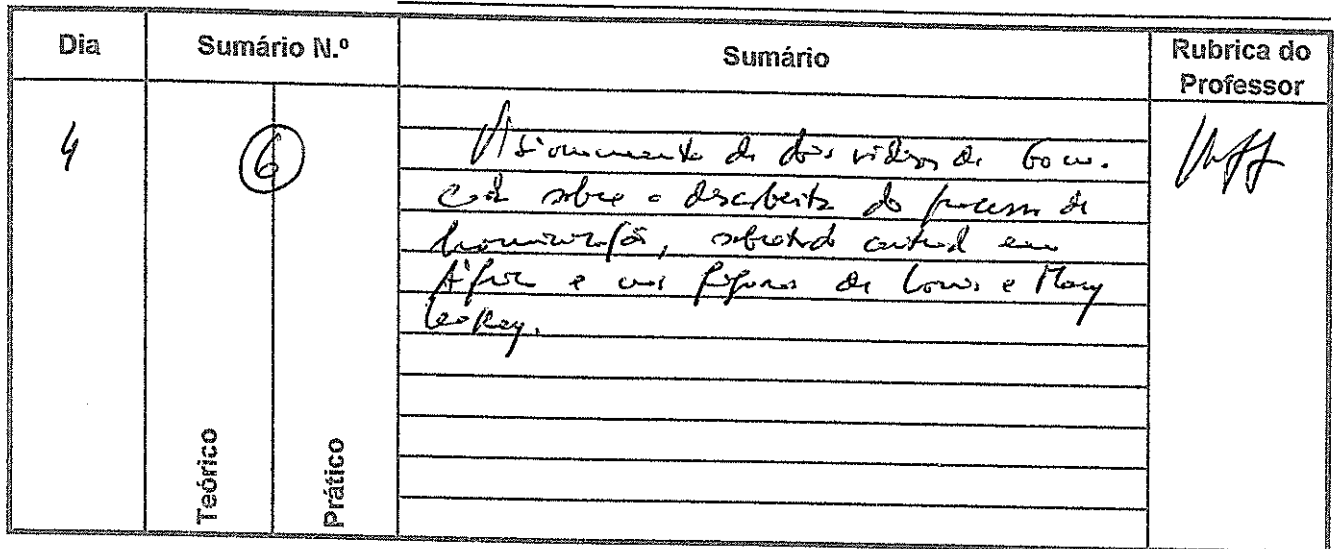 Dia
Sumário N.º
Sumário
Rubrica do
Professor
4
6
Visionamento de dois vídeos de 60 m.
cada sobre a descoberta do processo de
hominização, sobretudo central em
África e nas figuras de Louis e Mary
Leakey.
Teórico
Prático